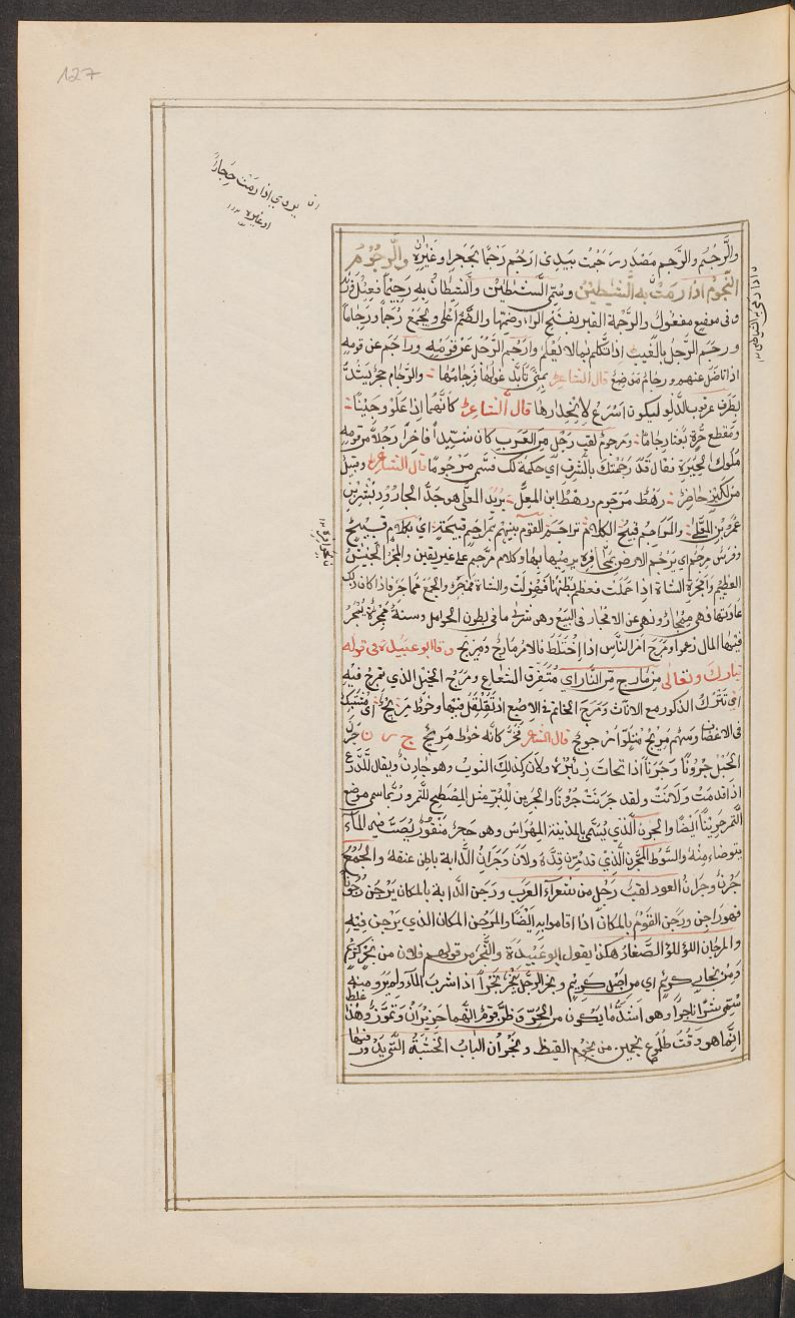 127
ان يردي اذا رمت حجارا
او غيره
والرَّجْم والرَّجم مَصْدَر رَجَمْت بيدي ارجُم رَجْمًا بحجر او غيره والرجوم
النجوم اذا رمت به الشياطين وسُمّي الشيطان رجيمًا فعيل
وفي موضع مفعول والرَّجمة القبر بفتح الراء وضمّها والضم اعلى ويجمع رُجَمًا ورجامًا
ورجَم الرَّجل بالغيب اذا تكلم بما لا يعلم وارجم الرَّجل عن قومه وراجَم عن قومه
اذا ناضل عنهم ورجام موضع قال الشاعر بمنًى تأبّد غولها فرجامها والرجام حجر يشدّ
بطرف عرقوة الدلو ليكون اسرع لانحدارها قال الشاعر كانهما اذا علوا وجينًا
ومقطع حرّة بعثا رجاما ومرجوم لقب رجل من العرب كان سيّدا فاخر رجلا من قومه
ملوك الحيرة فقال قد رجمتك بالشرف اي حكمت لك فسُمّي مرجومًا قال الشاعر وقبيل
من لكيز حاضر رهط مرجوم ورهط ابن المعل يريد المعلّى هو جدّ الجارود بن بشر بن
عمرو بن المعلّى والمراجم قبيح الكلام تراجم القوم بينهم بمراجم قبيحة اي بكلام قبيح
وفرس مرجم اي يرجم الارض بحوافره يرميها بها وكلام مرجّم على غير يقين والمجر الجيش
العظيم وامجرت الشاة اذا حملت فعظم بطنها فهزلت والشاة ممجر والجمع مماجر فاذا كان ذلك
عادتها فهي ممجار ونهي عن الامجار في البيع وهو شرا ما في بطون الحوامل وسنة ممجرة يمجر
فيها المال زعموا ومرج امر الناس اذا اختلط فالامر مارج ومريج وقال ابو عبيدة في قوله
تبارك وتعالى من مارج من النار اي متفرق الشعاع ومرج الخيل الذي تمرج فيه
اي تترك الذكور مع الاناث ومرج الخاتم في الاصبع اذ تقلقل فيها وخوط مريج اي مشتبك
في الاغصان وسهم مريج ملتو اعوج قال الشاعر فخرّ كانه خوط مريج ج ر ن جرن
الحبل جرونًا وجرنًا اذا لان وكذلك الثوب وهو جارن ويقال للدرع
اذا قدمت ولانت ولقد جرنت جرونا والجرين للبر مثل المصطح للتمر وربما سمي موضع
التمر جرينًا ايضًا والجرن الذي يسمّى بالمدينة المهراس وهو حجر منقور يصبّ فيه الماء
يتوضا منه والسّوط المجرن الذي قد مرن قدّه ولان وجران الدابة باطن عنقه والجمع
جرن وجران العود لقب رجل من شعراء العرب ورجن الدابة بالمكان يرجن رجونا
فهو راجن ورجن القوم بالمكان اذا اقاموا به ايضًا والمرجن المكان الذي يرجن فيه
والمرجان اللؤلؤ الصغار هكذا يقول ابو عبيدة والنجر من قولهم فلان من نجر كريم
ومن نجار كريم اي من اصل كريم ونجر الرجل ينجر نجرًا اذا شرب الماء ولم يرو ومنه
سمّي شهرا ناجر وهو اشدّ ما يكون من الحرّ وظن قوم انّهما حزيران وتموز وهذا غلط
انما هو وقت طلوع نجمين من نجوم القيظ ونجران الباب الخشبة التي يدور فيها